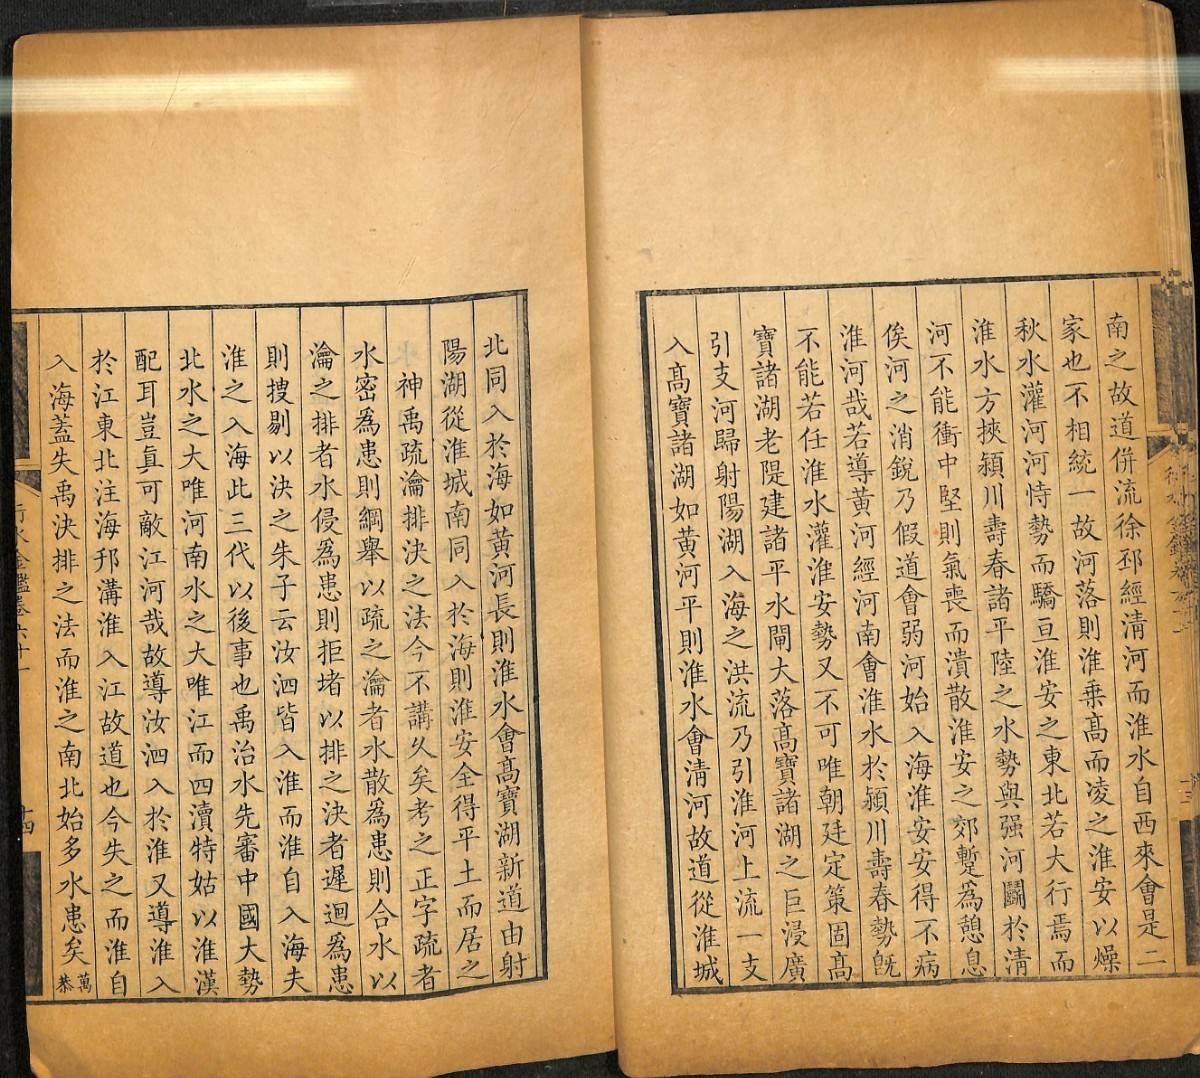 南之故道併流徐邳經淸河而淮水自西來會是二
家也不相統一故河落則淮乗髙而凌之淮安以燥
秋水灌河河恃勢而驕亘淮安之東北若大行焉而
淮水方挾潁川壽春諸平陸之水勢與强河鬭於淸
河不能衝中堅則氣喪而潰散淮安之郊蹔爲憩息
俟河之消銳乃假道會弱河始入海淮安安得不病
淮河哉若導黄河經河南會淮水於潁川壽春勢旣
不能若任淮水灌淮安勢又不可唯朝廷定策固髙
寶諸湖老隄建諸平水閘大落髙寶諸湖之巨浸廣
引支河歸射陽湖入海之洪流乃引淮河上流一支
入髙寶諸湖如黄河平則淮水會淸河故道從淮城
北同入於海如黄河長則淮水會髙寶湖新道由射
陽湖從淮城南同入於海則淮安全得平土而居之
神禹疏瀹排決之法今不講久矣考之正字疏者
水密爲患則綱舉以疏之瀹者水散爲患則合水以
瀹之排者水侵爲患則拒堵以排之決者遲迴爲患
則搜剔以決之朱子云汝泗皆入淮而淮自入海夫
淮之入海此三代以後事也禹治水先審中國大勢
北水之大唯河南水之大唯江而四瀆特姑以淮漢
配耳豈眞可敵江河哉故導汝泗入於淮又導淮入
於江東北注海邗溝淮入江故道也今失之而淮自
入海蓋失禹決排之法而淮之南北始多水患矣萬恭
行水金鑑卷六十一
十四